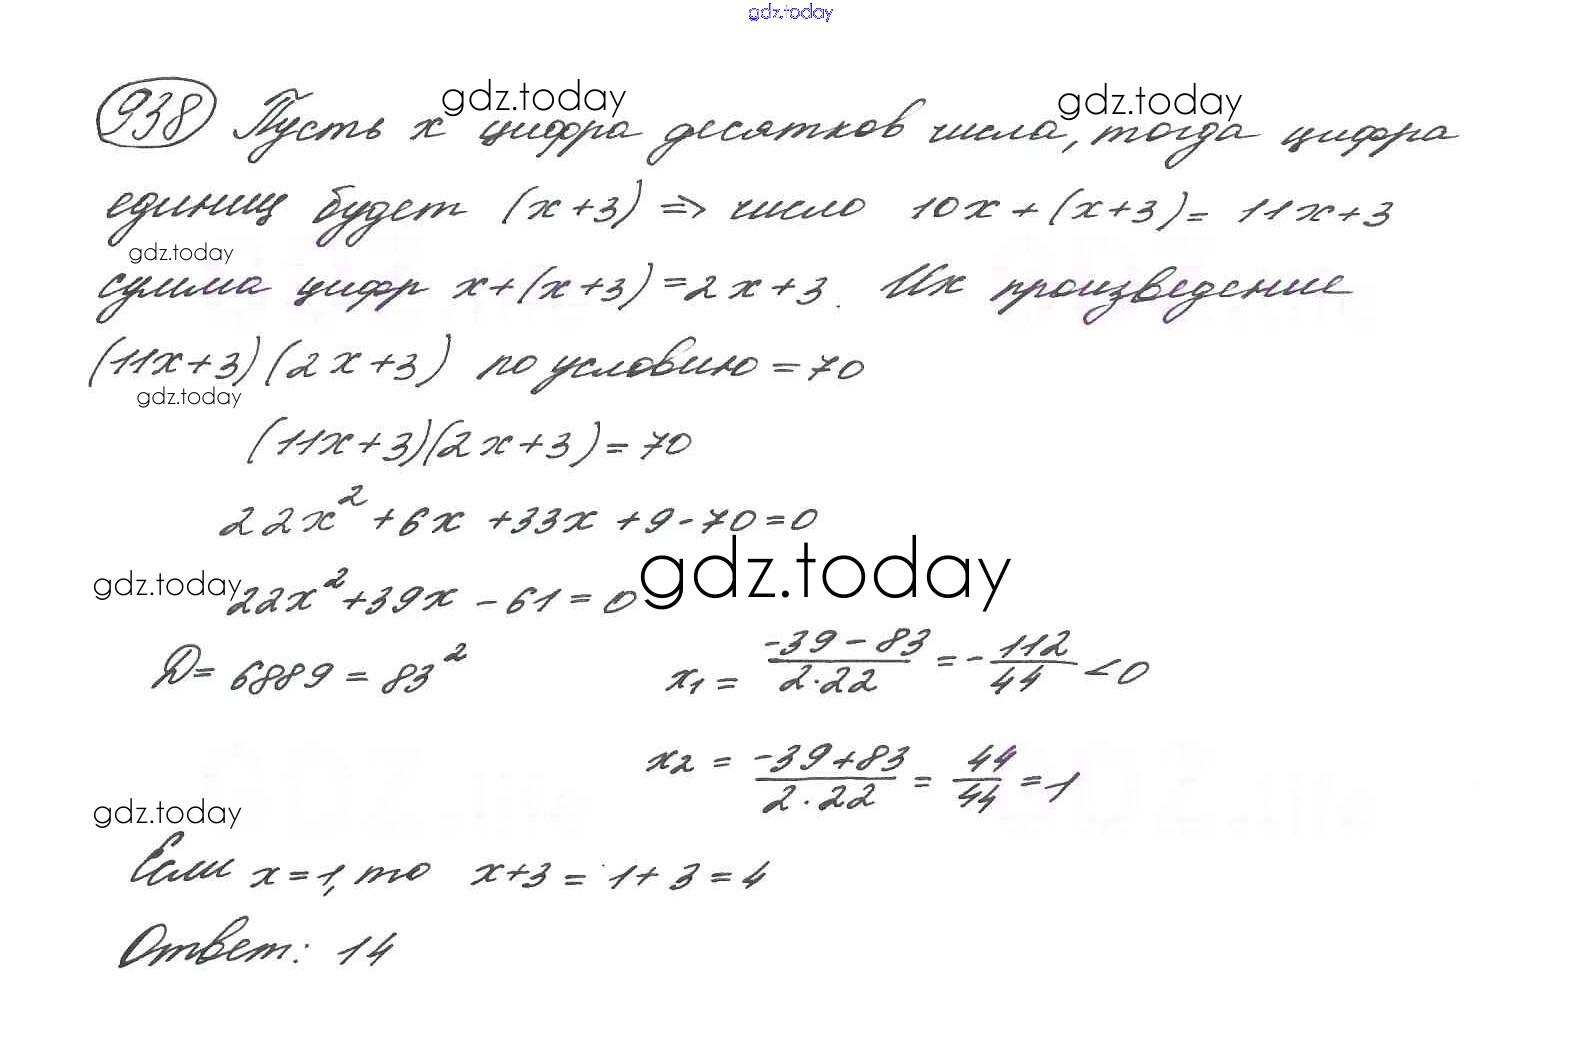 gdz.today
938 Пусть x цифра десятков числа, тогда цифра
gdz.today gdz.today
единиц будет (x+3) => число 10x+(x+3)= 11x+3
gdz.today
сумма цифр x+(x+3)=2x+3. Их произведение
(11x+3)(2x+3) по условию =70
gdz.today
(11x+3)(2x+3)=70
22x²+6x+33x+9-70=0
gdz.today
gdz.today
22x²+39x-61=0
D=6889=83² x₁ = (-39-83)/(2·22) = -112/44 <0
x₂ = (-39+83)/(2·22) = 44/44 =1
gdz.today
Если x=1, то x+3=1+3=4
Ответ: 14